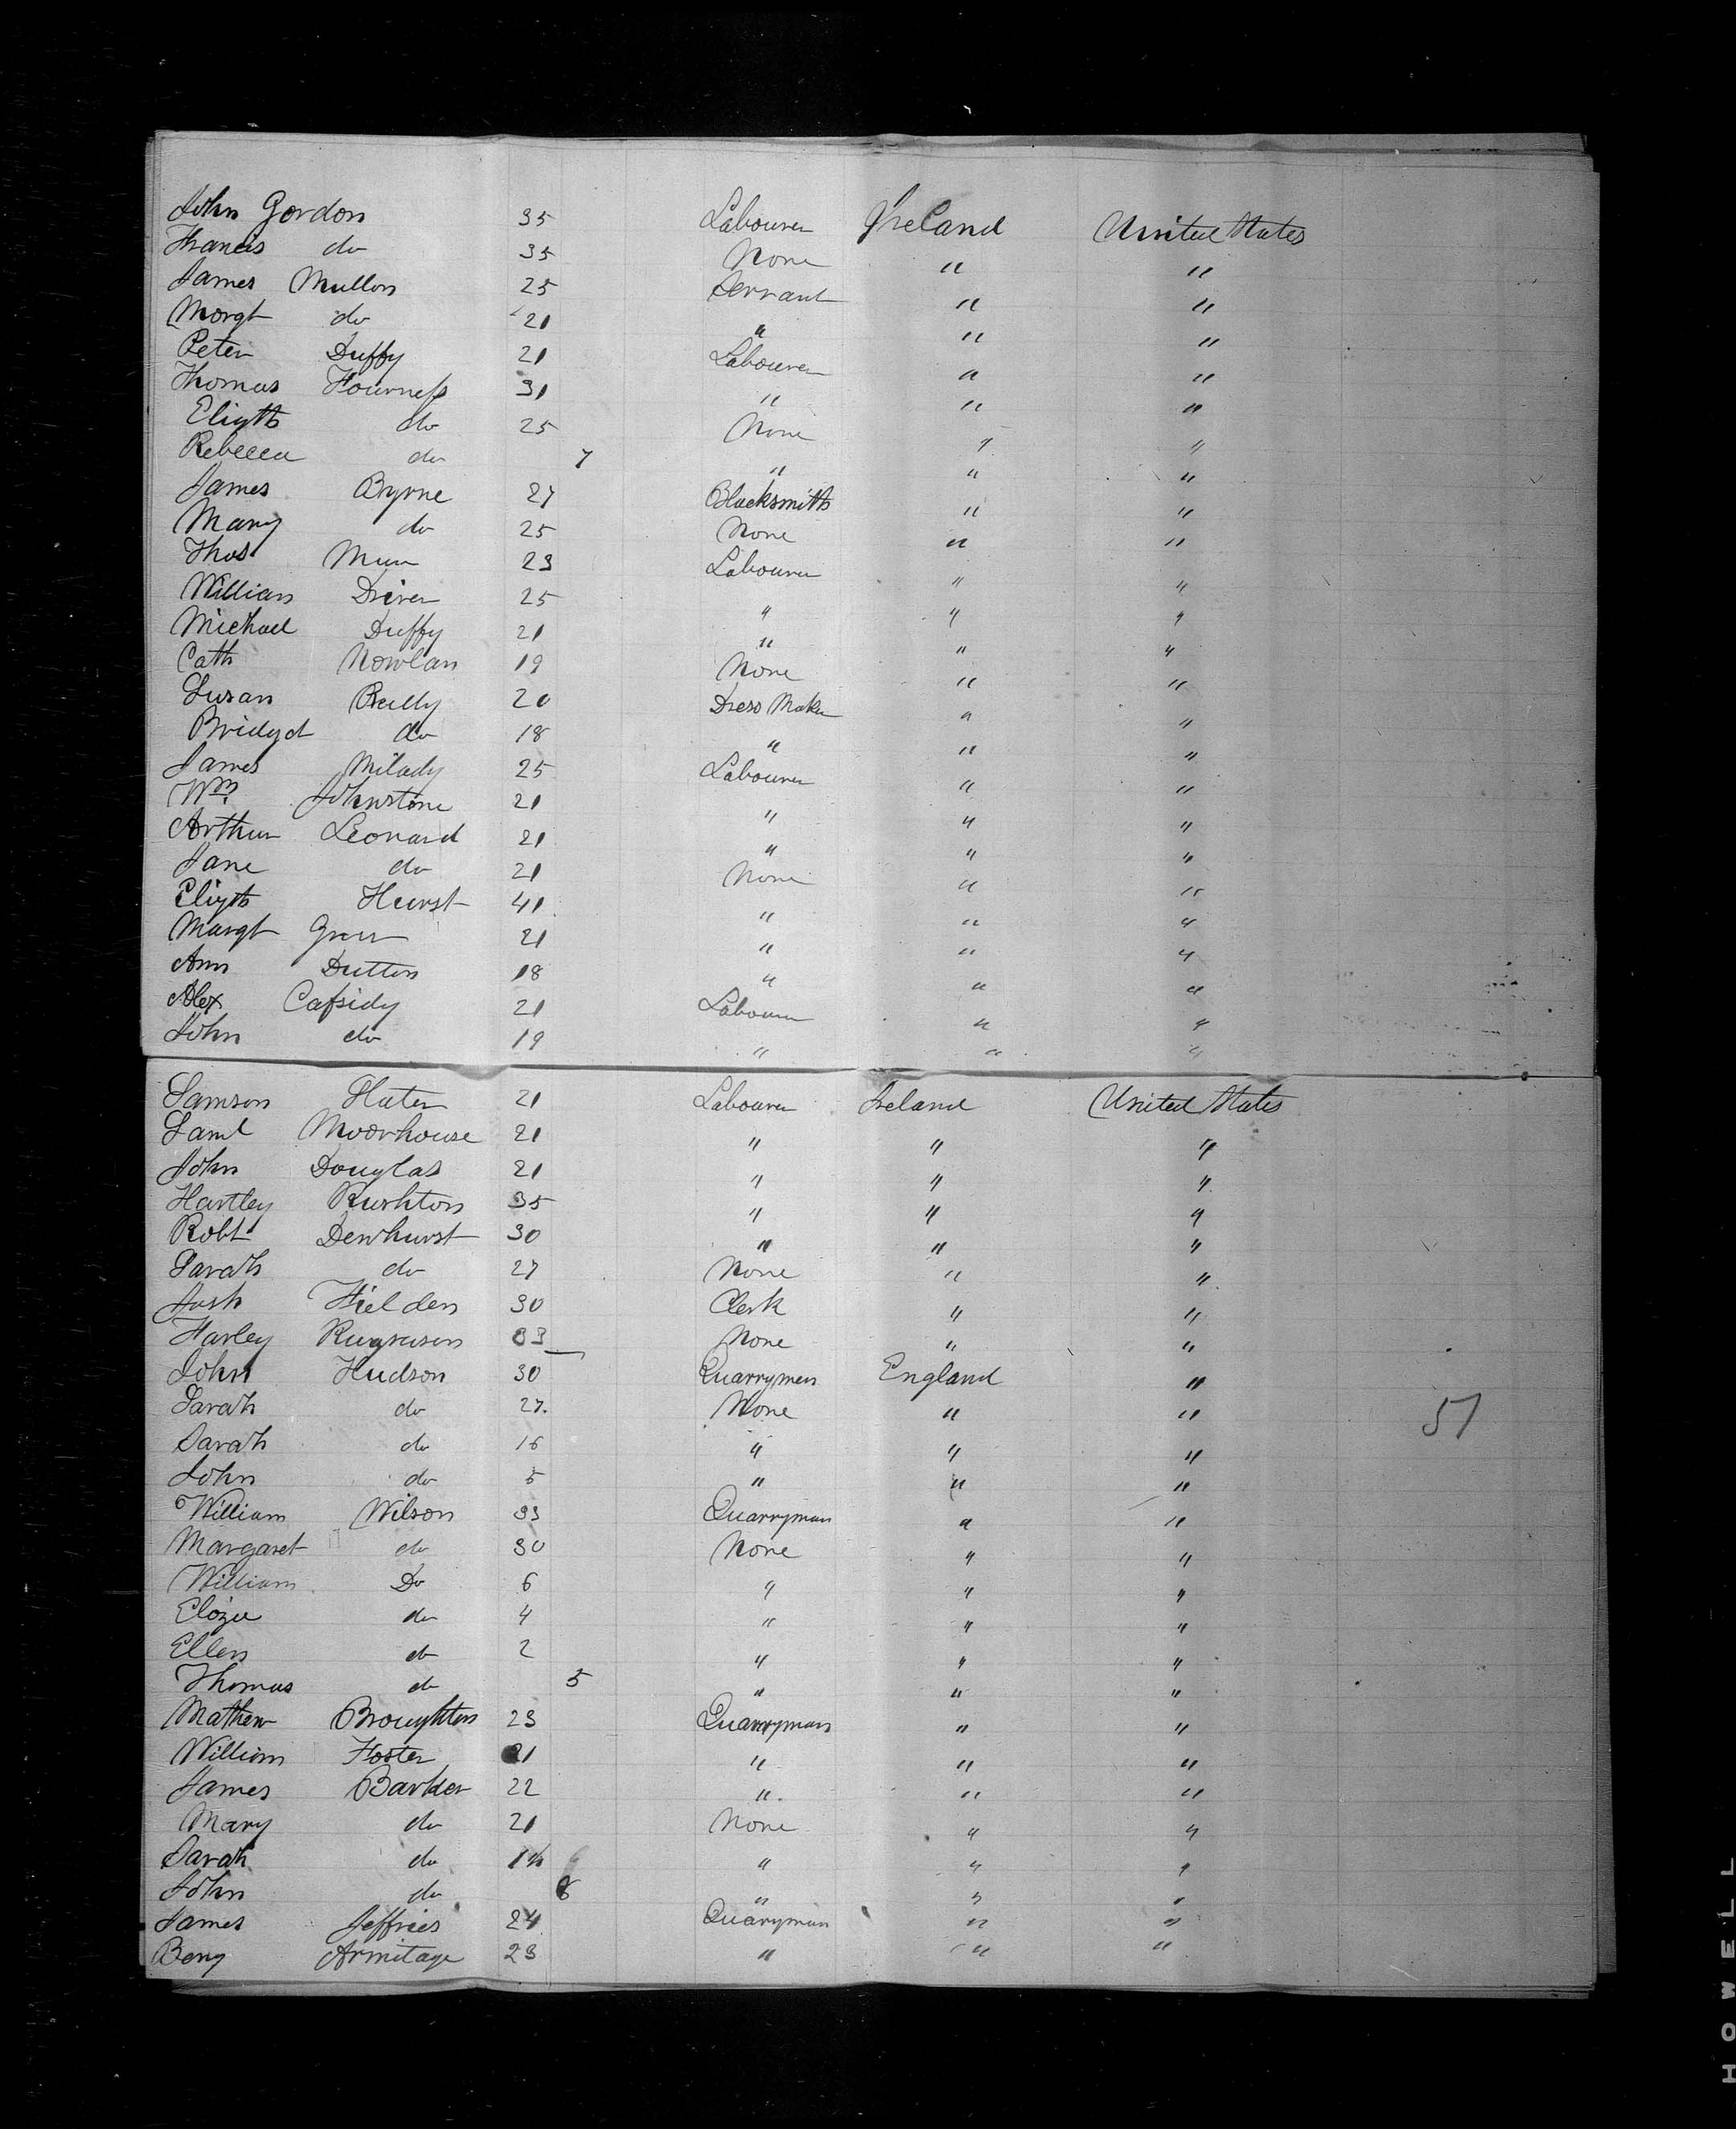 John Gordon 35 Labourer Ireland United States
Francis do 35 None " "
James Mullon 25 Servant " "
Margt do 21 " " "
Peter Duffy 21 Labourer " "
Thomas Fourness 31 " " "
Elizth do 25 None " "
Rebecca do 7 " " "
James Byrne 27 Blacksmith " "
Mary do 25 None " "
Thos 23 Labourer " "
William Driver 25 " " "
Michael Duffy 21 " " "
Cath Nowlan 19 None " "
Susan Reilly 20 Dress Maker " "
Bridget do 18 " " "
James Milady 25 Labourer " "
Wm Johnstone 21 " " "
Arthur Leonard 21 " " "
Jane do 21 None " "
Elizth Hurst 41 " " "
Margt 21 " " "
Ann Dutton 18 " " "
Alex Cassidy 21 Labourer " "
John do 19 " " "
Samson Slater 21 Labourer Ireland United States
Saml Moorhouse 21 " " "
John Douglas 21 " " "
Hartley Rushton 35 " " "
Robt Dewhurst 30 " " "
Sarah do 27 None " "
Josh Fielden 30 Clerk " "
Harley 33 None " "
John Hudson 30 Quarryman England "
Sarah do 27 None " "
51
Sarah do 16 " " "
John do 5 " " "
William Wilson 33 Quarryman " "
Margaret do 30 None " "
William Do 6 " " "
Eliza do 4 " " "
Ellen do 2 " " "
Thomas do 5 " " "
Mathew Broughton 23 Quarryman " "
William Foster 21 " " "
James Barker 22 " " "
Mary do 21 None " "
Sarah do " " "
John do 8 " " "
James Jeffries 24 Quaryman " "
Benj Armitage 23 " " "
HOWELL